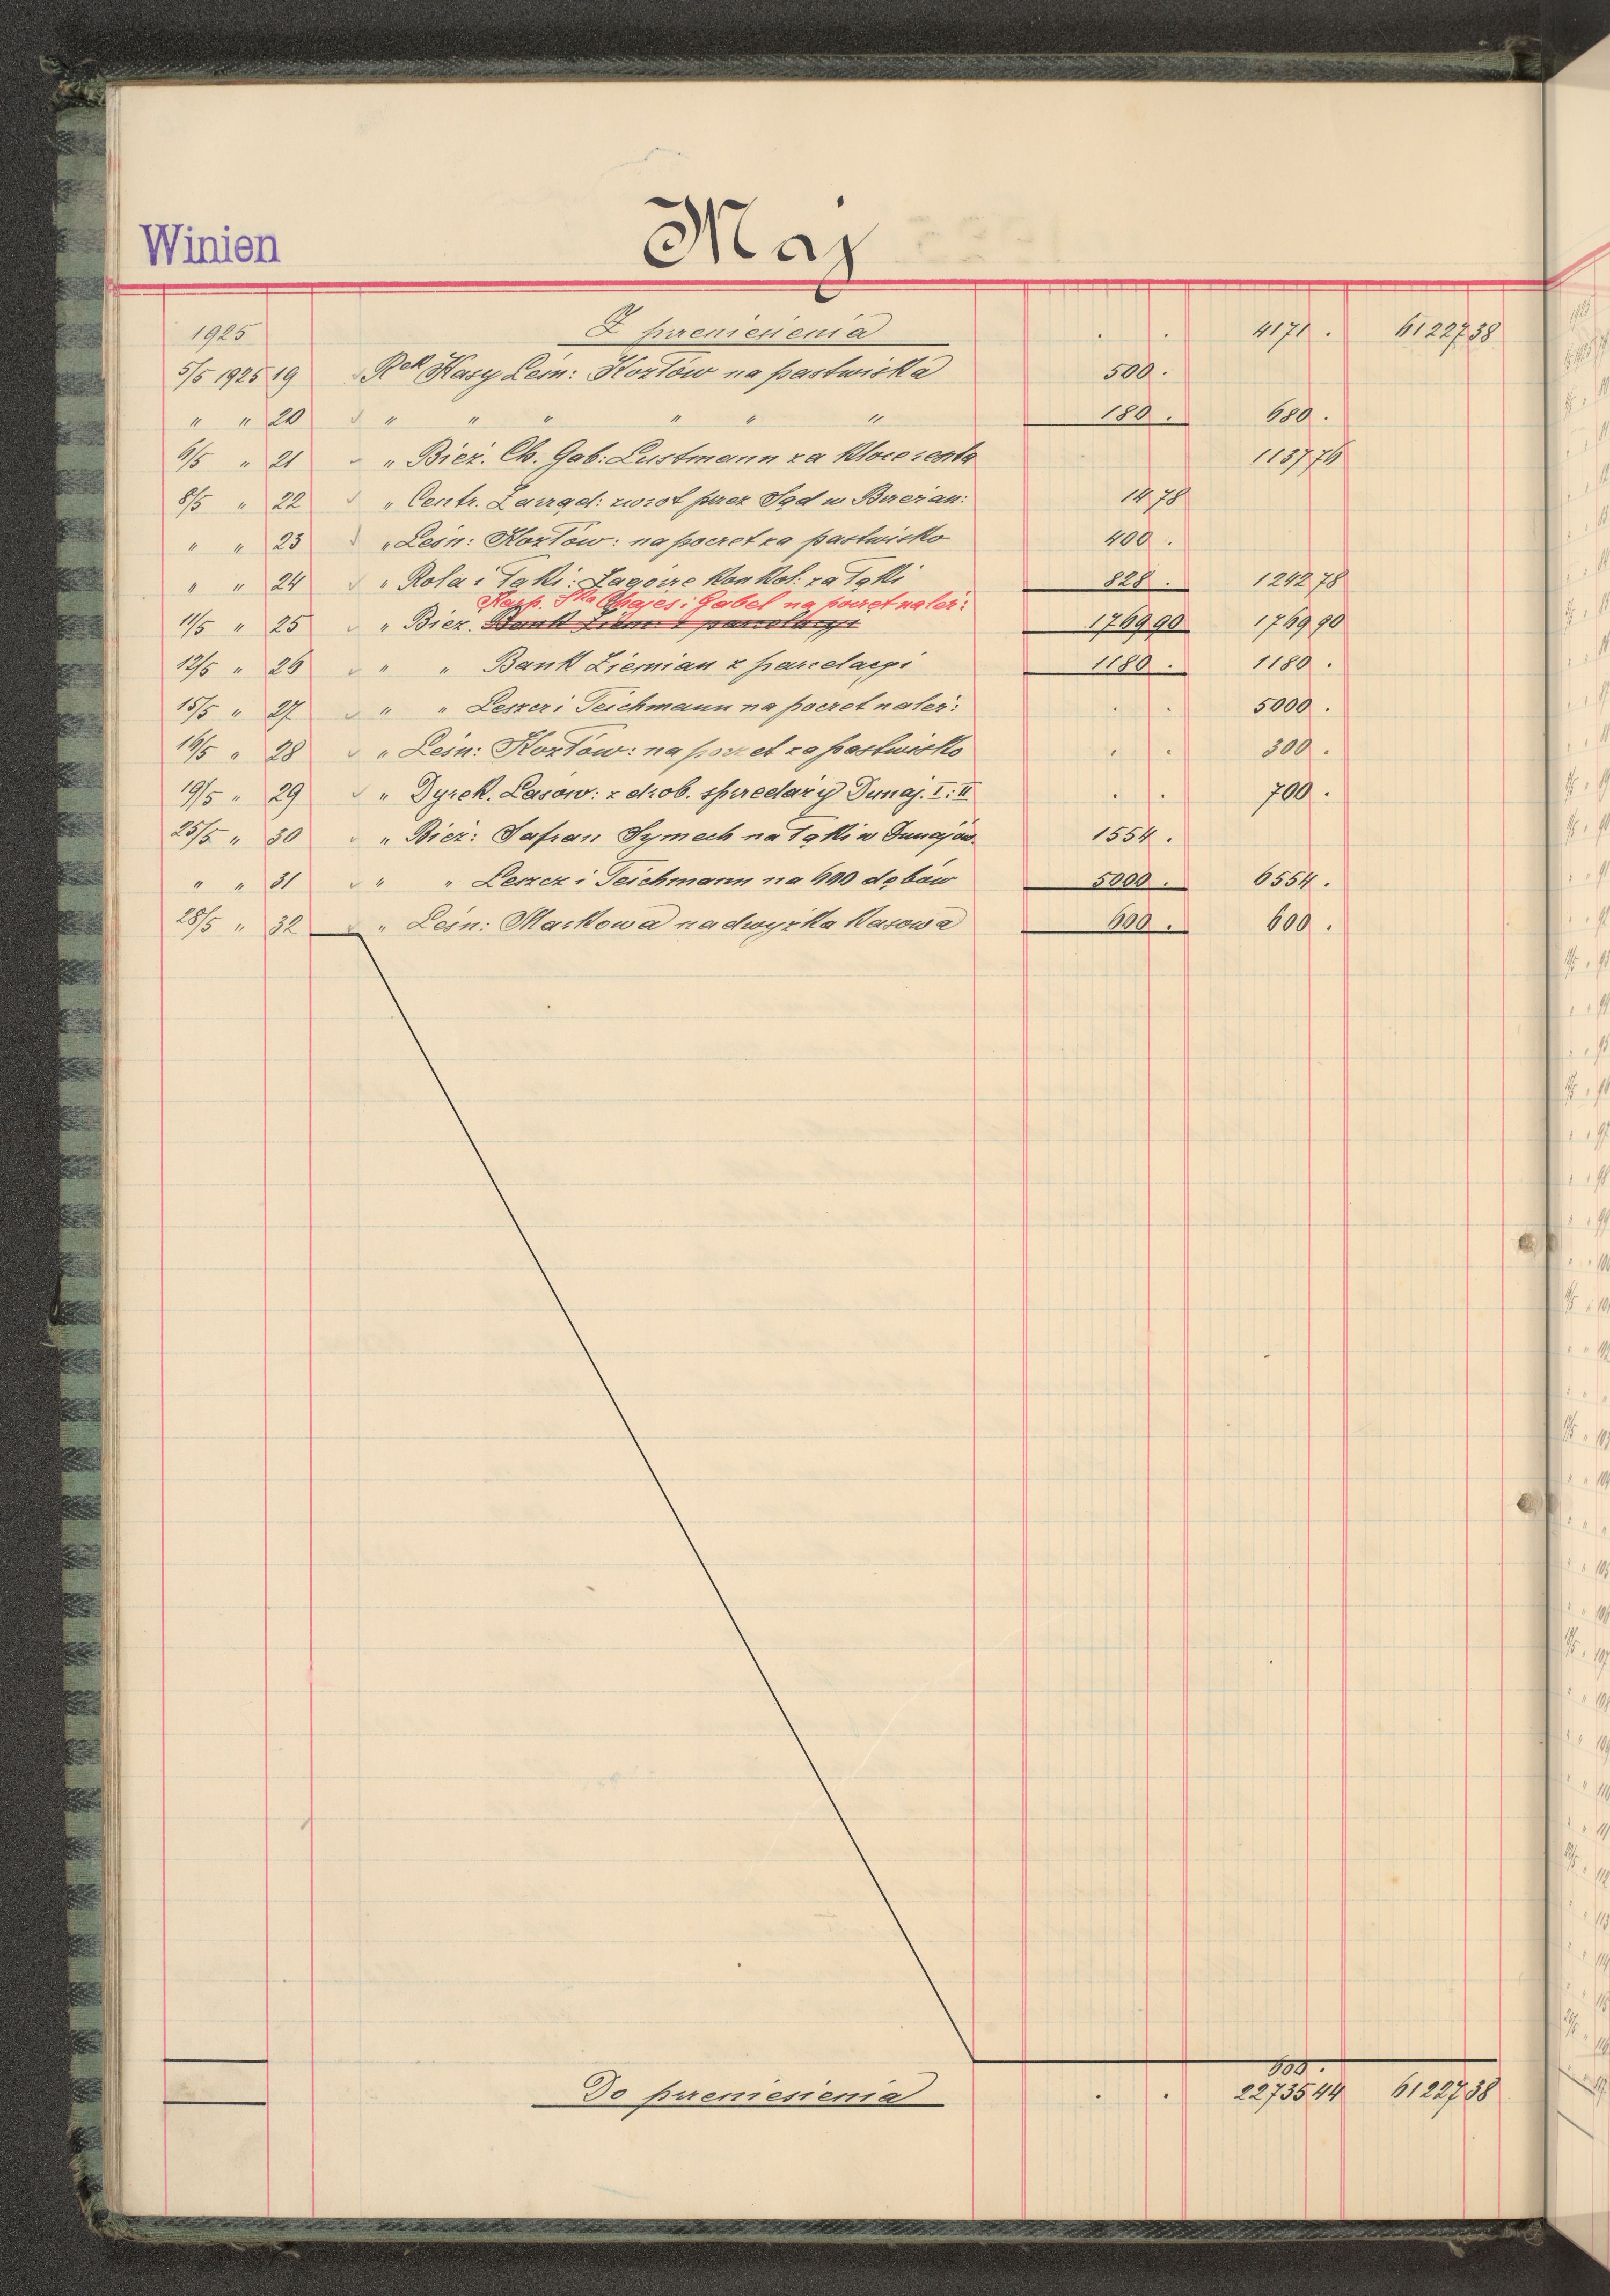 Winien
Maj
1925 Z przeniesienia . . 4171 . 61227 38
5/5 1925 19 Rek Kasy Leśn: Kozłów na pastwiska 500 .
" " 20 " " " " " " 180 . 680 .
6/5 " 21 " Bież. Ch. Gab: Lustmann za kloce 1137 76
8/5 " 22 " Centr. Zarząd: zwrot przez Sąd w Brzeżan: 14 78
" " 23 " Leśn: Kozłów: na poczet za pastwisko 400 .
" " 24 " Rola i Łąki: Zagórze Konkol: za łąki 828 . 1242 78
Ska Chajes i Gabel na poczet należ:
11/5 " 25 " Bież. Bank Ziem: z parcelacyi 1769 90 1769 90
12/5 " 26 " " Bank Ziemian z parcelacyi 1180 . 1180 .
15/5 " 27 " " Leszcz i Teichmann na poczet należ: . . 5000 .
16/5 " 28 " Leśn: Kozłów: na poczet za pastwisko . . 300 .
19/5 " 29 " Dyrek. Lasów: z drob. sprzedaży Dunaj. I i II . . 700 .
25/5 " 30 " Bież: Safran Symech na łąki w Dunajow. 1554 .
" " 31 " " Leszcz i Teichmann na 400 dębów 5000 . 6554 .
28/5 " 32 " Leśn: Markowa nadwyżka kasowa 600 . 600 .
600 .
Do przeniesienia . . 22735 44 61227 38